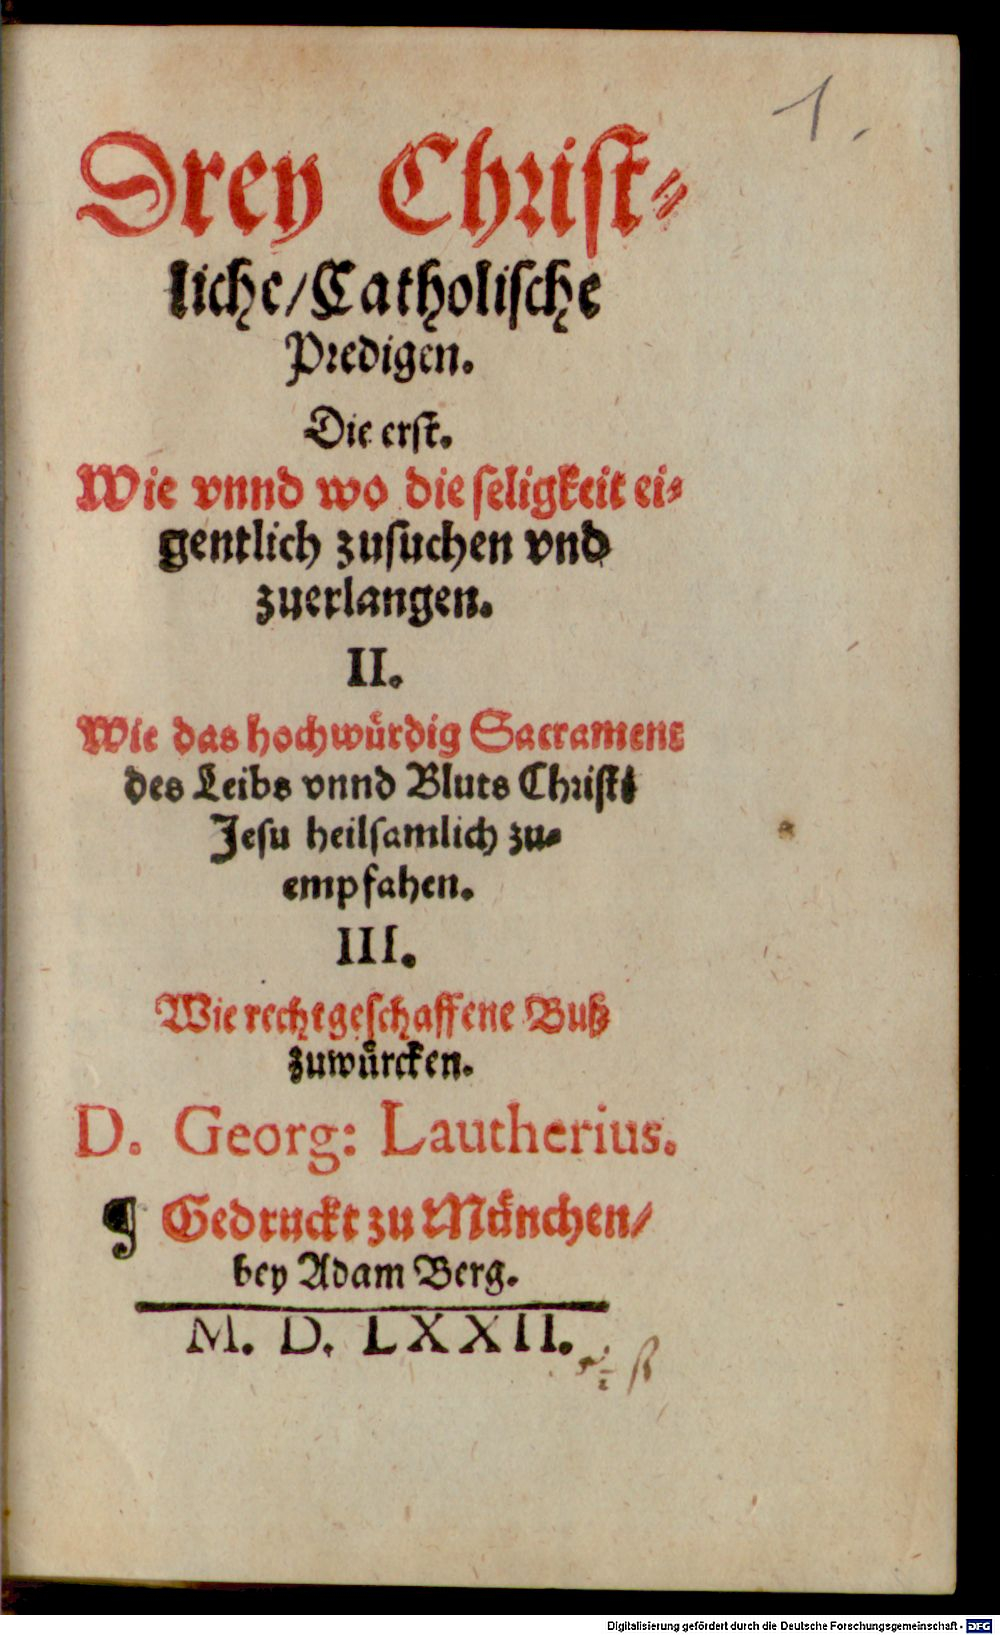 1.
Drey Christ-
liche/Catholische
Predigen.
Die erst.
Wie vnnd wo die seligkeit ei-
gentlich zusuchen vnd
zuerlangen.
II.
Wie das hochwürdig Sacrament
des Leibs vnnd Bluts Christi
Jesu heilsamlich zu-
empfahen.
III.
Wie rechtgeschaffene Buß
zuwürcken.
D. Georg: Lautherius.
¶ Gedruckt zu München/
bey Adam Berg.
M. D. LXXII.
Digitalisierung gefördert durch die Deutsche Forschungsgemeinschaft - DFG